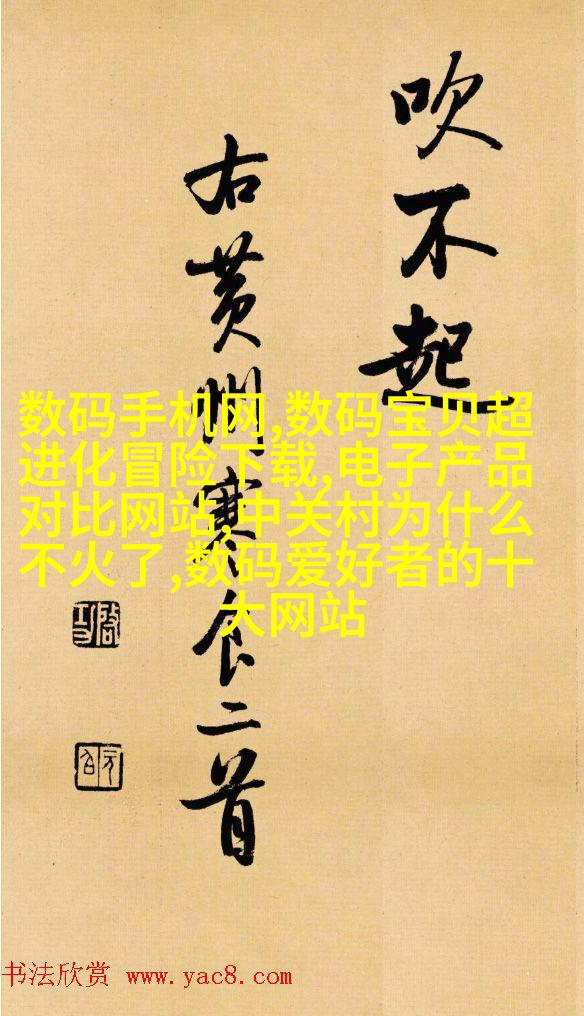 吹不起
右黄州寒食二首
数码手机网,数码宝贝超
进化冒险下载,电子产品
对比网站,中关村为什么
不火了,数码爱好者的十
大网站
啓功
元白
书法欣赏 www.yac8.com